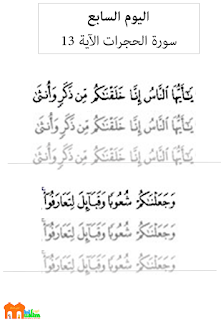 اليوم السابع
سورة الحجرات الآية 13
يَـٰٓأَيُّهَا ٱلنَّاسُ إِنَّا خَلَقْنَـٰكُم مِّن ذَكَرٍ وَأُنثَىٰ
يَـٰٓأَيُّهَا ٱلنَّاسُ إِنَّا خَلَقْنَـٰكُم مِّن ذَكَرٍ وَأُنثَىٰ
يَـٰٓأَيُّهَا ٱلنَّاسُ إِنَّا خَلَقْنَـٰكُم مِّن ذَكَرٍ وَأُنثَىٰ
وَجَعَلْنَـٰكُمْ شُعُوبًا وَقَبَآئِلَ لِتَعَارَفُوٓا۟ ۚ
وَجَعَلْنَـٰكُمْ شُعُوبًا وَقَبَآئِلَ لِتَعَارَفُوٓا۟ ۚ
وَجَعَلْنَـٰكُمْ شُعُوبًا وَقَبَآئِلَ لِتَعَارَفُوٓا۟ ۚ